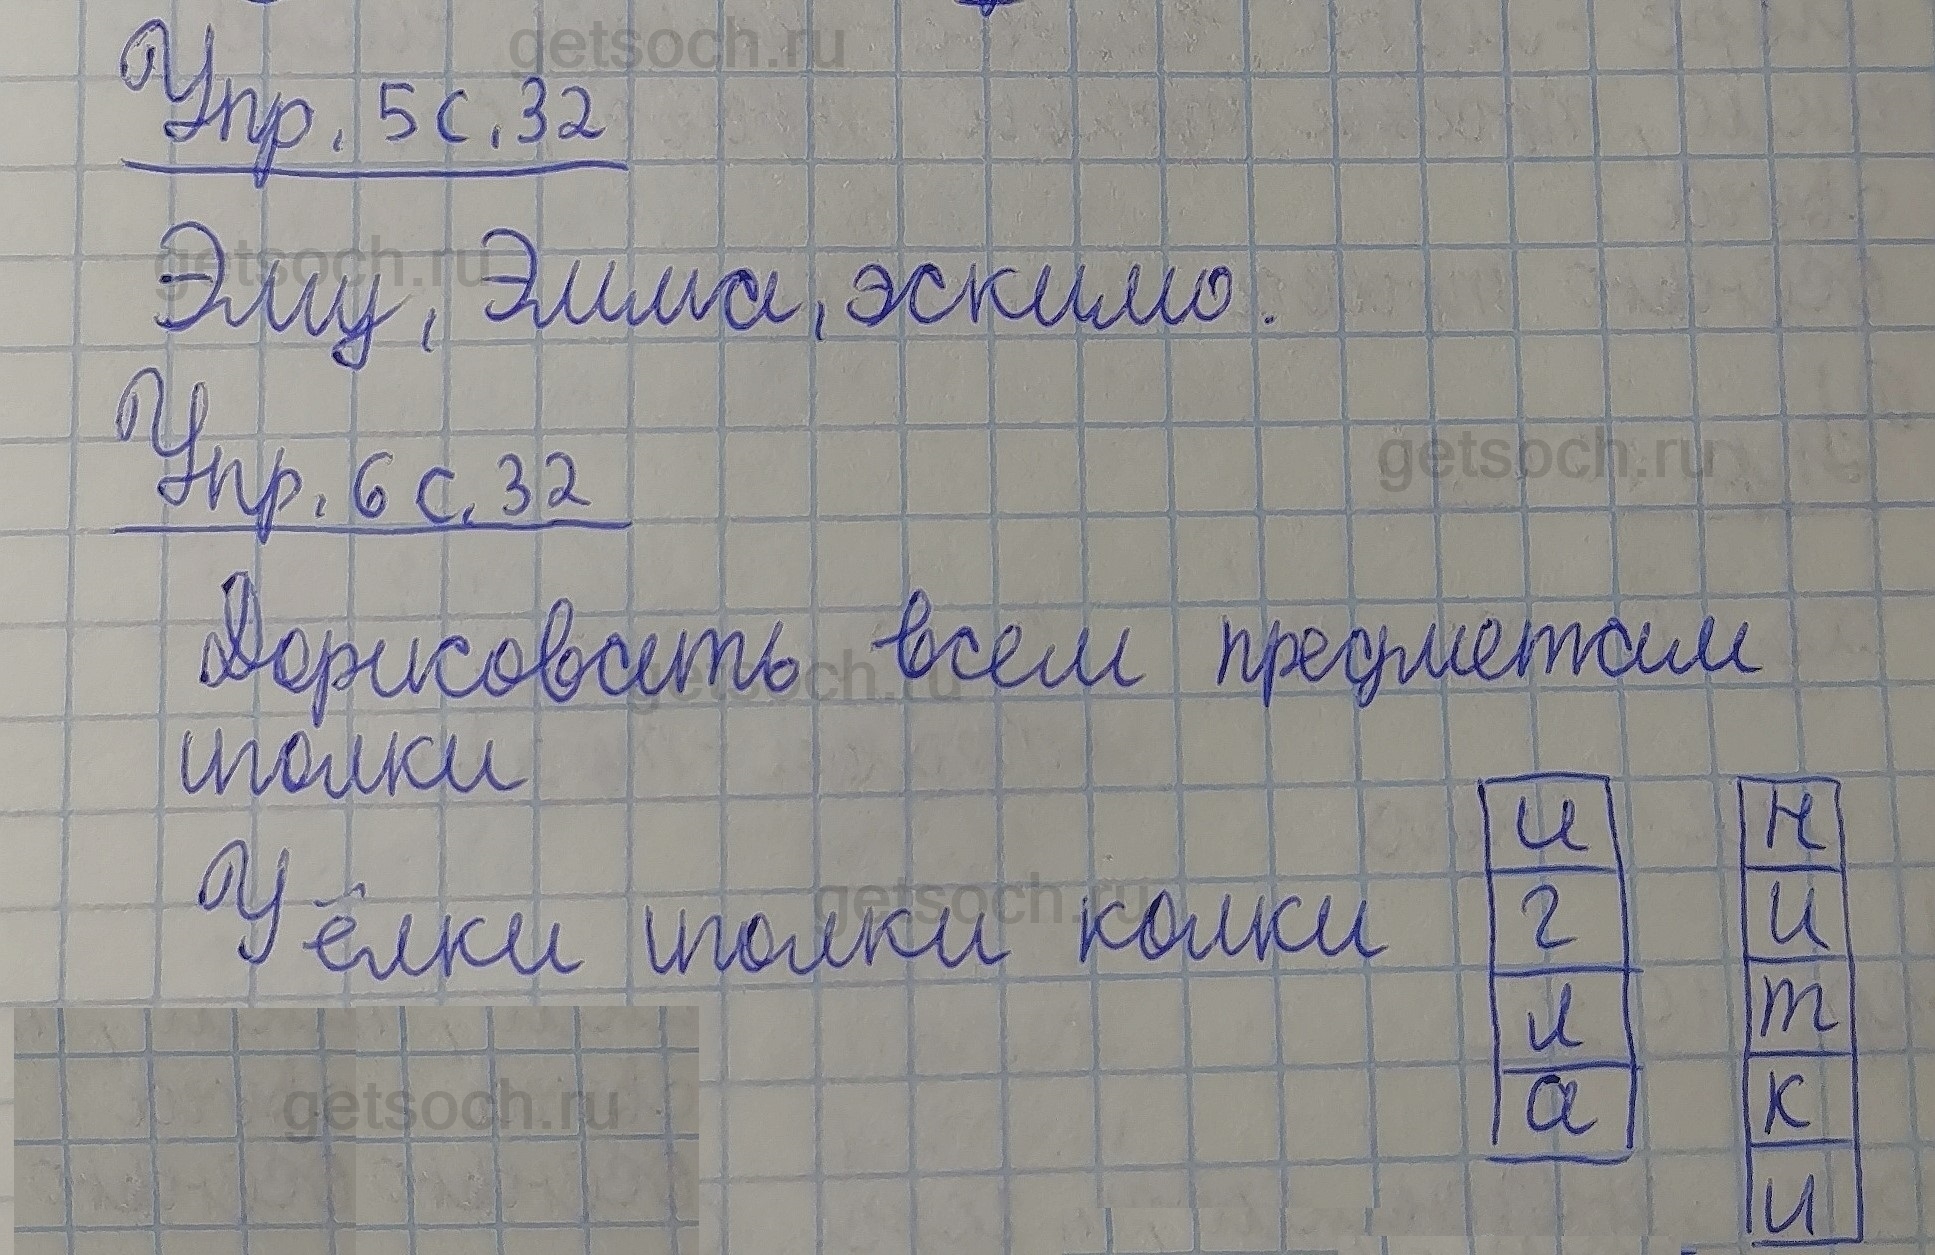 getsoch.ru
Упр. 5 с. 32
getsoch.ru
Эму, Эмма, эскимо.
Упр. 6 с. 32
getsoch.ru
Дорисовать всем предметам
getsoch.ru
иголки
У ёлки иголки колки
getsoch.ru
и
г
л
а
н
и
т
к
и
getsoch.ru